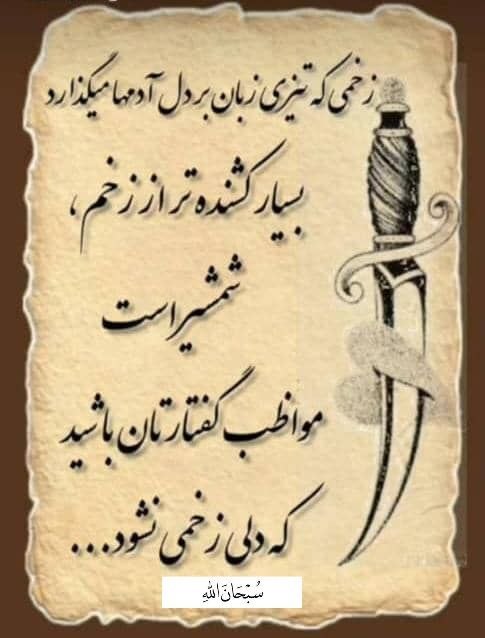 زخمی که تیزی زبان بر دل آدمها میگذارد
بسیار کشنده تر از زخم،
شمشیر است
مواظب گفتارتان باشید
که دلی زخمی نشود...
سُبْحَانَ اللهِ